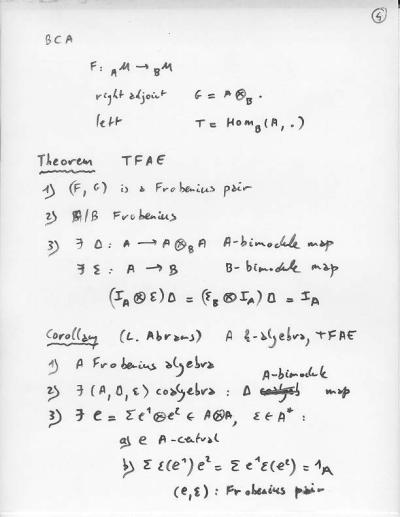 4
B C A
F: _A M → _B M
right adjoint G = A ⊗_B .
left T = Hom_B(A, .)
Theorem TFAE
1) (F, G) is a Frobenius pair
2) A/B Frobenius
3) ∃ Δ: A → A ⊗_B A A-bimodule map
∃ ε: A → B B-bimodule map
(I_A ⊗ ε) Δ = (ε_B ⊗ I_A) Δ = I_A
Corollary (L. Abrams) A k-algebra, TFAE
1) A Frobenius algebra
A-bimodule
2) ∃ (A, Δ, ε) coalgebra : Δ map
3) ∃ e = Σ e¹ ⊗ e² ∈ A⊗A, ε ∈ A* :
a) e A-central
b) Σ ε(e¹) e² = Σ e¹ ε(e²) = 1_A
(e, ε) : Frobenius pair